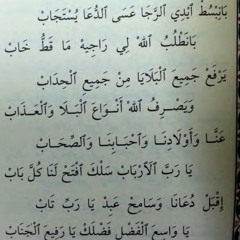 بَانِبْسُطْ اَيْدِي ٱلرَّجَا عَسَى ٱلدُّعَا يُسْتَجَابْ
بَانَطْلُبُ ٱللّٰهَ لِي رَاجِيهْ مَا قَطُّ خَابْ
يَرْفَعْ جَمِيعَ ٱلْبَلَايَا مِنْ جَمِيعِ ٱلْحِدَابْ
وَيَصْرِفُ ٱللّٰهُ أَنْوَاعَ ٱلْبَلَا وَٱلْعَذَابْ
عَنَّا وَأَوْلَادِنَا وَأَحْبَابِنَا وَٱلصِّحَابْ
يَا رَبَّ ٱلْأَرْبَابْ سَلَكْ اَفْتَحْ لَنَا كُلَّ بَابْ
إِقْبَلْ دُعَانَا وَسَامِحْ عَبْدْ يَا رَبِّ تَابْ
يَا وَاسِعَ ٱلْفَضْلِ فَضْلَكْ يَا رَفِيعَ ٱلْجَنَابْ